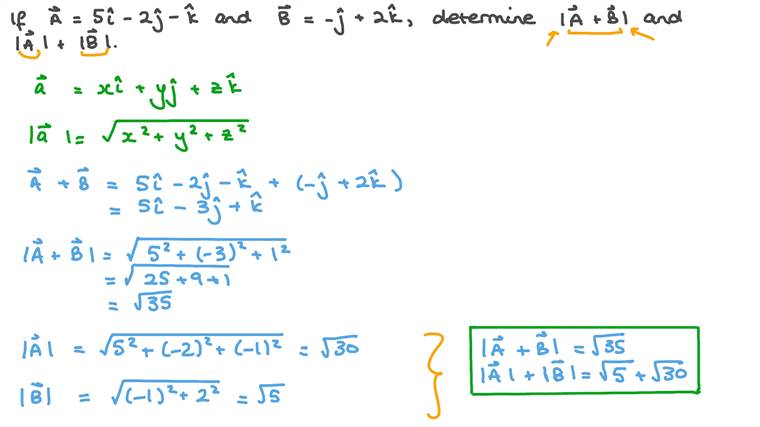 If A⃗ = 5î - 2ĵ - k̂ and B⃗ = -ĵ + 2k̂, determine |A⃗ + B⃗| and
|A⃗| + |B⃗|.
a⃗ = xî + yĵ + zk̂
|a⃗| = √(x² + y² + z²)
A⃗ + B⃗ = 5î - 2ĵ - k̂ + (-ĵ + 2k̂)
= 5î - 3ĵ + k̂
|A⃗ + B⃗| = √(5² + (-3)² + 1²)
= √(25 + 9 + 1)
= √35
|A⃗| = √(5² + (-2)² + (-1)²) = √30
|B⃗| = √((-1)² + 2²) = √5
|A⃗ + B⃗| = √35
|A⃗| + |B⃗| = √5 + √30